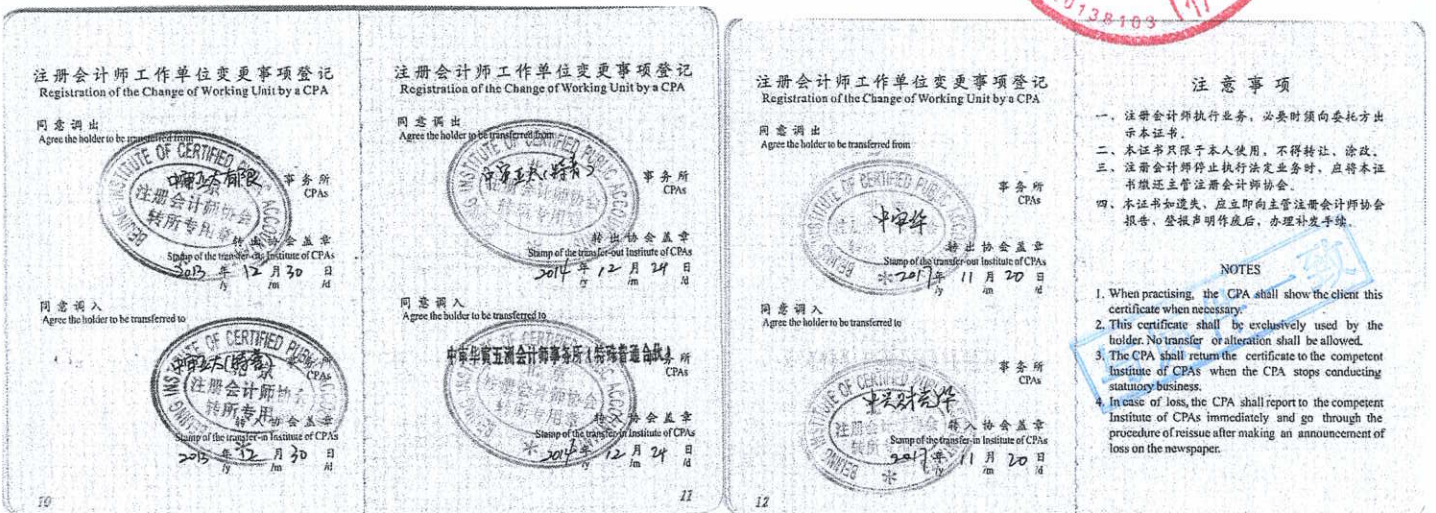 0138103
注册会计师工作单位变更事项登记
Registration of the Change of Working Unit by a CPA
同意调出
Agree the holder to be transferred from
BEIJING INSTITUTE OF CERTIFIED PUBLIC ACCOU
中审亚太有限
事务所
CPAs
注册会计师协会
转所专用章
转出协会盖章
Stamp of the transfer-out Institute of CPAs
2013年12月30日
/y /m /d
同意调入
Agree the holder to be transferred to
INS OF CERTIFIED PUBLIC
中审亚太(特普)
事务所
CPAs
注册会计师协会
转所专用
转入协会盖章
Stamp of the transfer-in Institute of CPAs
2013年12月30日
/y /m /d
10
注册会计师工作单位变更事项登记
Registration of the Change of Working Unit by a CPA
同意调出
Agree the holder to be transferred from
INSTITUTE OF CERTIFIED PUBLIC ACCO
中审亚太(特普)
事务所
CPAs
注册会计师协会
转所专用章
转出协会盖章
Stamp of the transfer-out Institute of CPAs
2014年12月24日
/y /m /d
同意调入
Agree the holder to be transferred to
中审华寅五洲会计师事务所(特殊普通合伙)
事务所
CPAs
注册会计师协会
转所专用章
转入协会盖章
Stamp of the transfer-in Institute of CPAs
2014年12月24日
/y /m /d
11
注册会计师工作单位变更事项登记
Registration of the Change of Working Unit by a CPA
同意调出
Agree the holder to be transferred from
BEIJING INSTITUTE OF CERTIFIED PUBLIC
中审华
事务所
CPAs
转出协会盖章
Stamp of the transfer-out Institute of CPAs
2017年11月20日
/y /m /d
同意调入
Agree the holder to be transferred to
BEIJING INSTITUTE OF CERTIFIED PUBLIC
中兴财光华
事务所
CPAs
注册会计师协会
转所
转入协会盖章
Stamp of the transfer-in Institute of CPAs
2017年11月20日
/y /m /d
12
注意事项
一、注册会计师执行业务，必要时须向委托方出
示本证书。
二、本证书只限于本人使用，不得转让、涂改。
三、注册会计师停止执行法定业务时，应将本证
书缴还主管注册会计师协会。
四、本证书如遗失，应立即向主管注册会计师协会
报告，登报声明作废后，办理补发手续。
NOTES
1. When practising, the CPA shall show the client this
certificate when necessary.
2. This certificate shall be exclusively used by the
holder. No transfer or alteration shall be allowed.
3. The CPA shall return the certificate to the competent
Institute of CPAs when the CPA stops conducting
statutory business.
4. In case of loss, the CPA shall report to the competent
Institute of CPAs immediately and go through the
procedure of reissue after making an announcement of
loss on the newspaper.